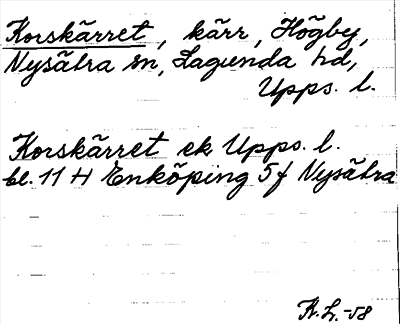 Korskärret, kärr, Högby,
Nysätra sn, Lagunda hd,
Upps. l.
Korskärret ek Upps. l.
bl. 11 H Enköping 5 f Nysätra
K.L.-58